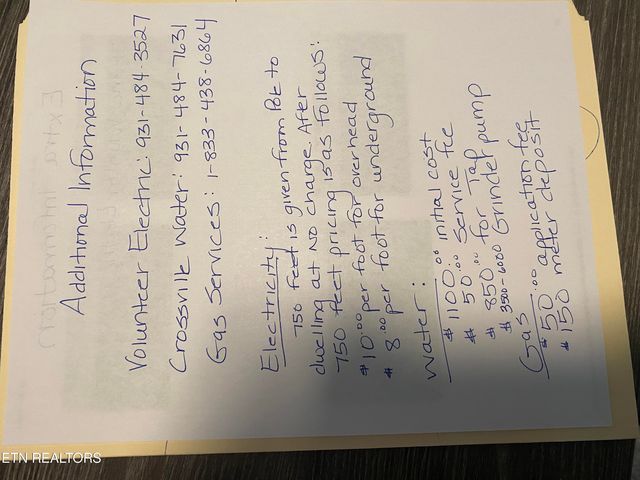 Additional Information
Volunteer Electric: 931-484-3527
Crossville Water: 931-484-7631
Gas Services: 1-833-438-6864
Electricity:
750 feet is given from Pole to
dwelling at no charge After
750 feet pricing is as follows:
$10.00 per foot for overhead
$ 8.00 per foot for underground
Water:
$1100.00 initial cost
$ 50.00 service fee
$ 850.00 for Tap
$ 3500-6000 Grinder pump
Gas
$50.00 application fee
$150 meter deposit
ETN REALTORS